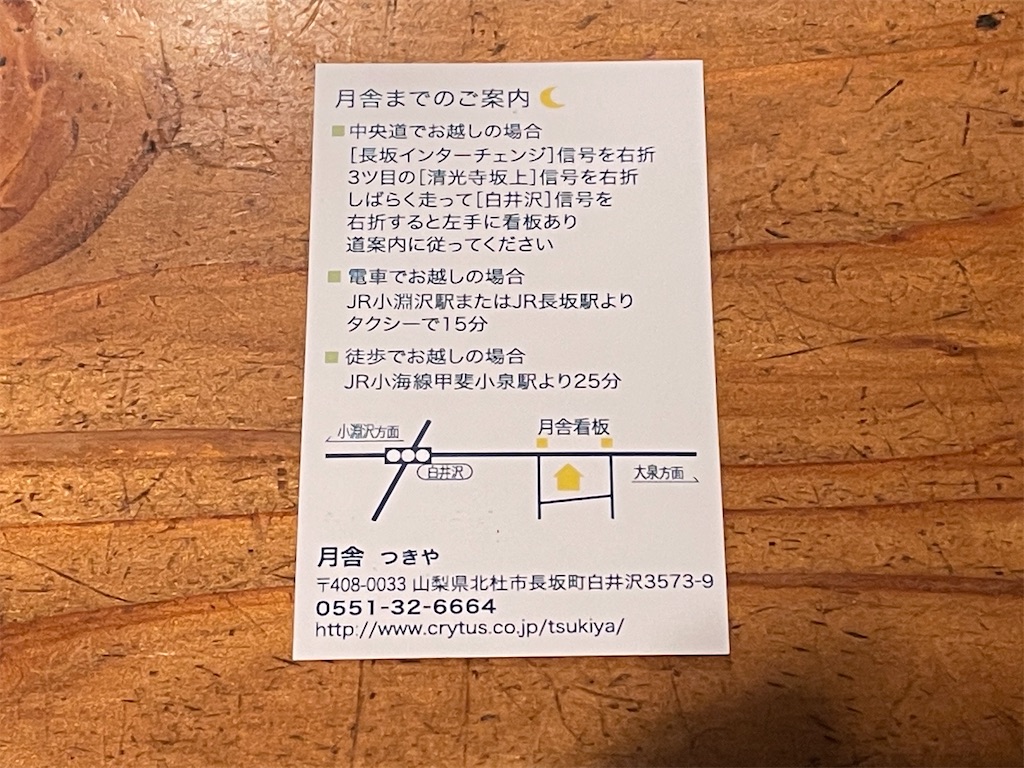 月舎までのご案内
中央道でお越しの場合
[長坂インターチェンジ]信号を右折
3ツ目の[清光寺坂上]信号を右折
しばらく走って[白井沢]信号を
右折すると左手に看板あり
道案内に従ってください
電車でお越しの場合
JR小淵沢駅またはJR長坂駅より
タクシーで15分
徒歩でお越しの場合
JR小海線甲斐小泉駅より25分
小淵沢方面
月舎看板
白井沢
大泉方面
月舎 つきや
〒408-0033 山梨県北杜市長坂町白井沢3573-9
0551-32-6664
http://www.crytus.co.jp/tsukiya/